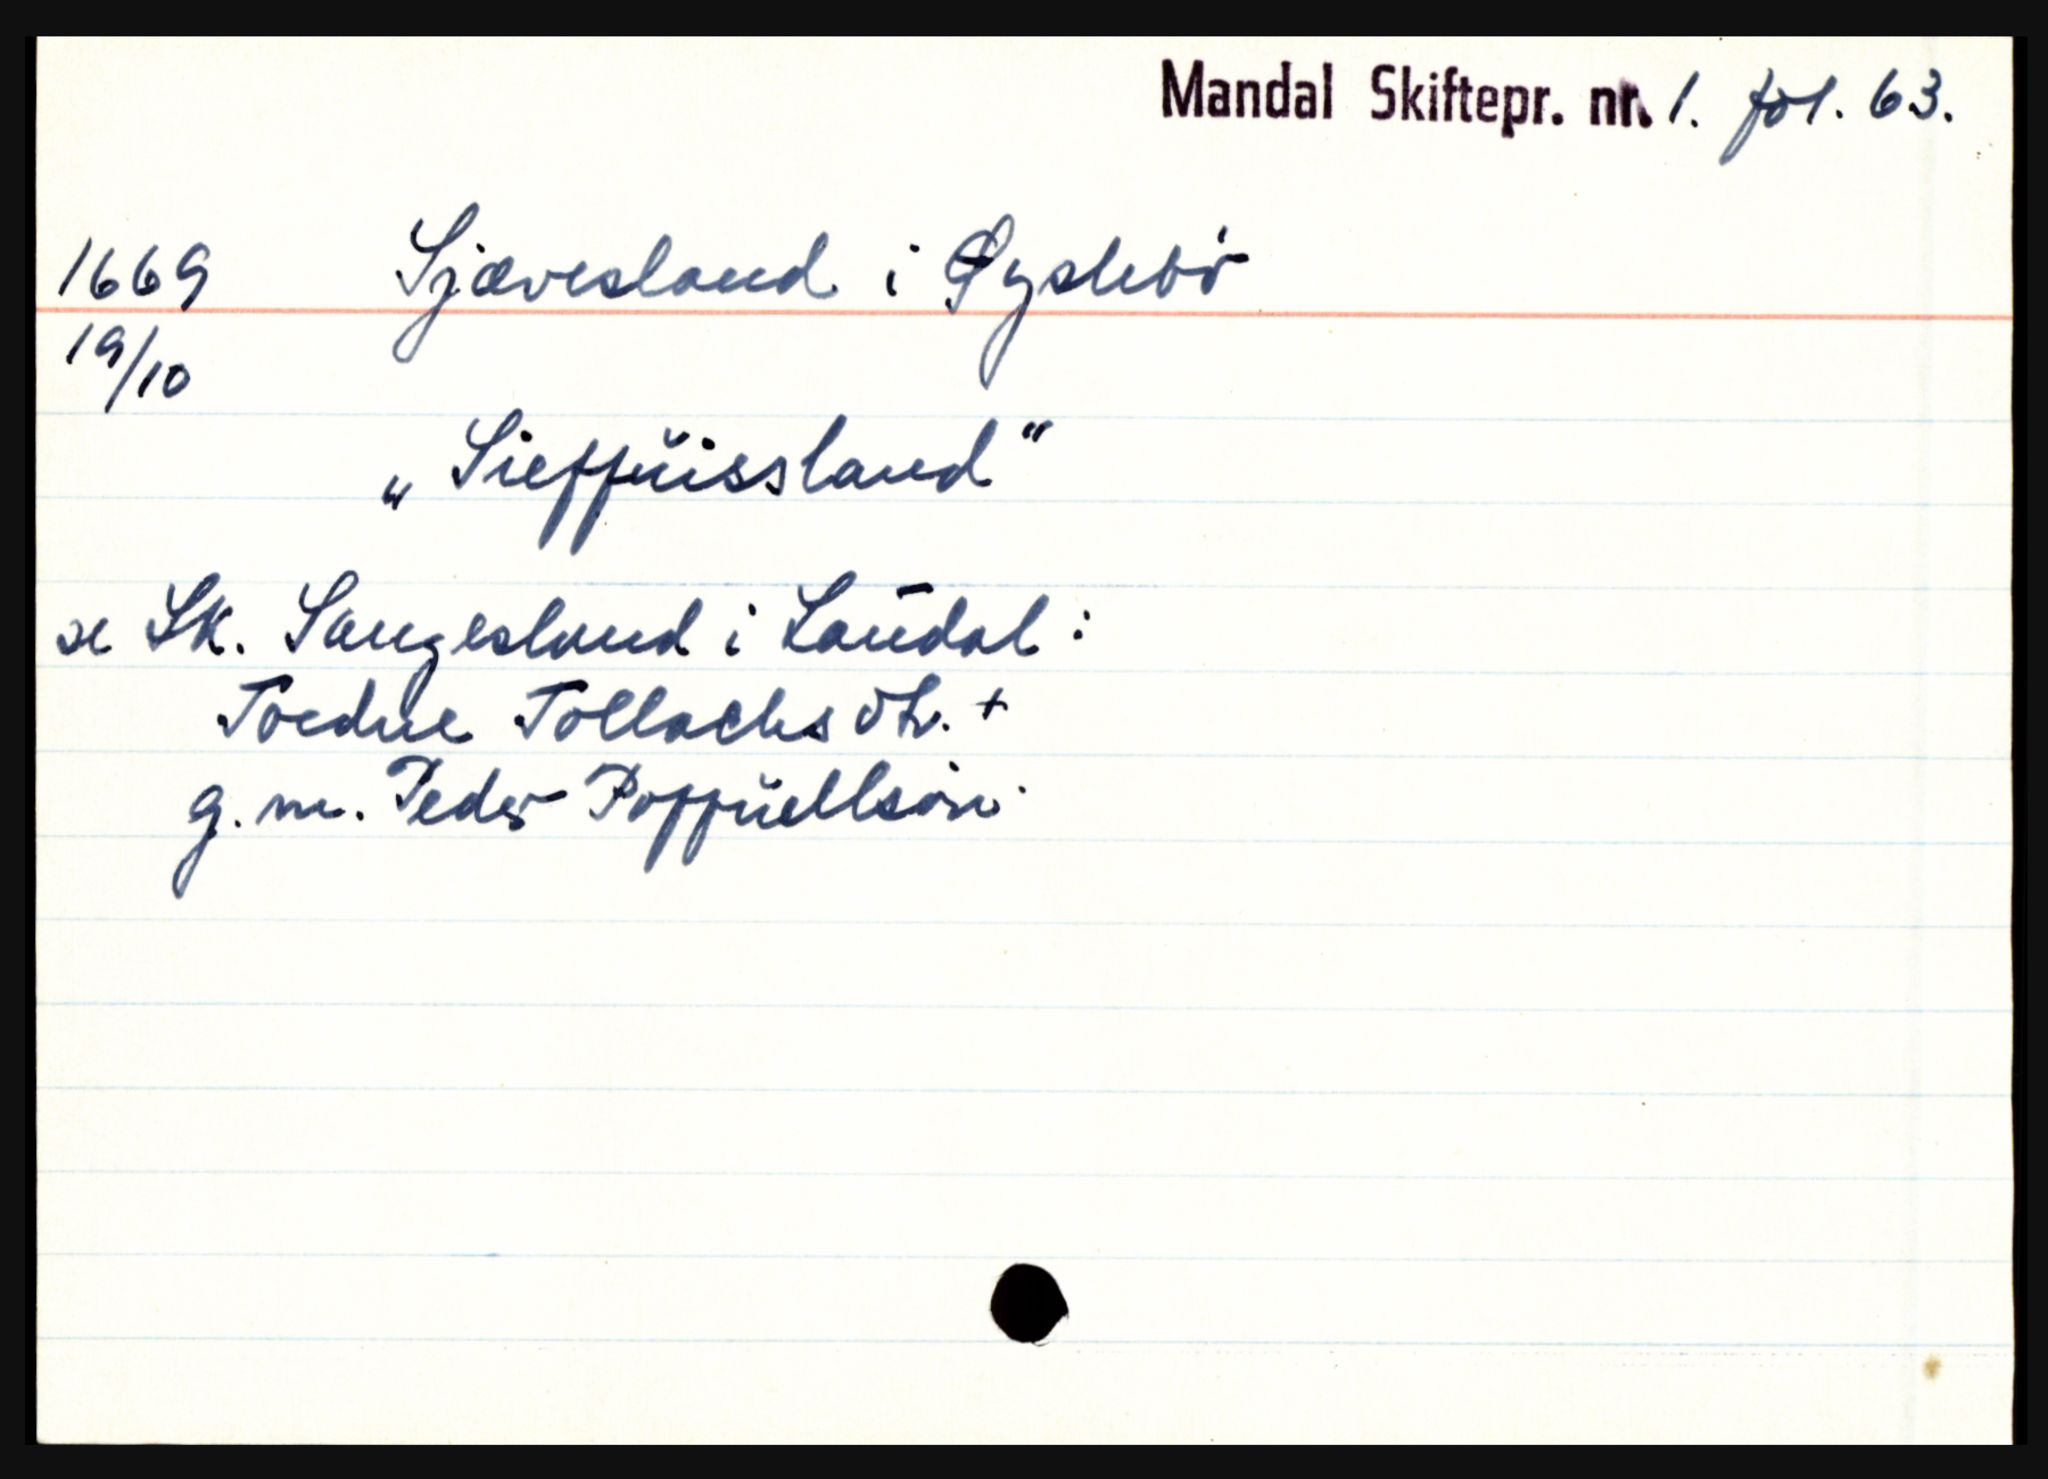 Mandal Skiftepr. nr. 1. fol. 63.
1669 Sjævesland i Øyslebø
19/10
„Sieffuissland“
se Sk. Sangesland i Laudal:
Toedne Tollachs dtr. +
g. m. Peder Poffuellsøn.